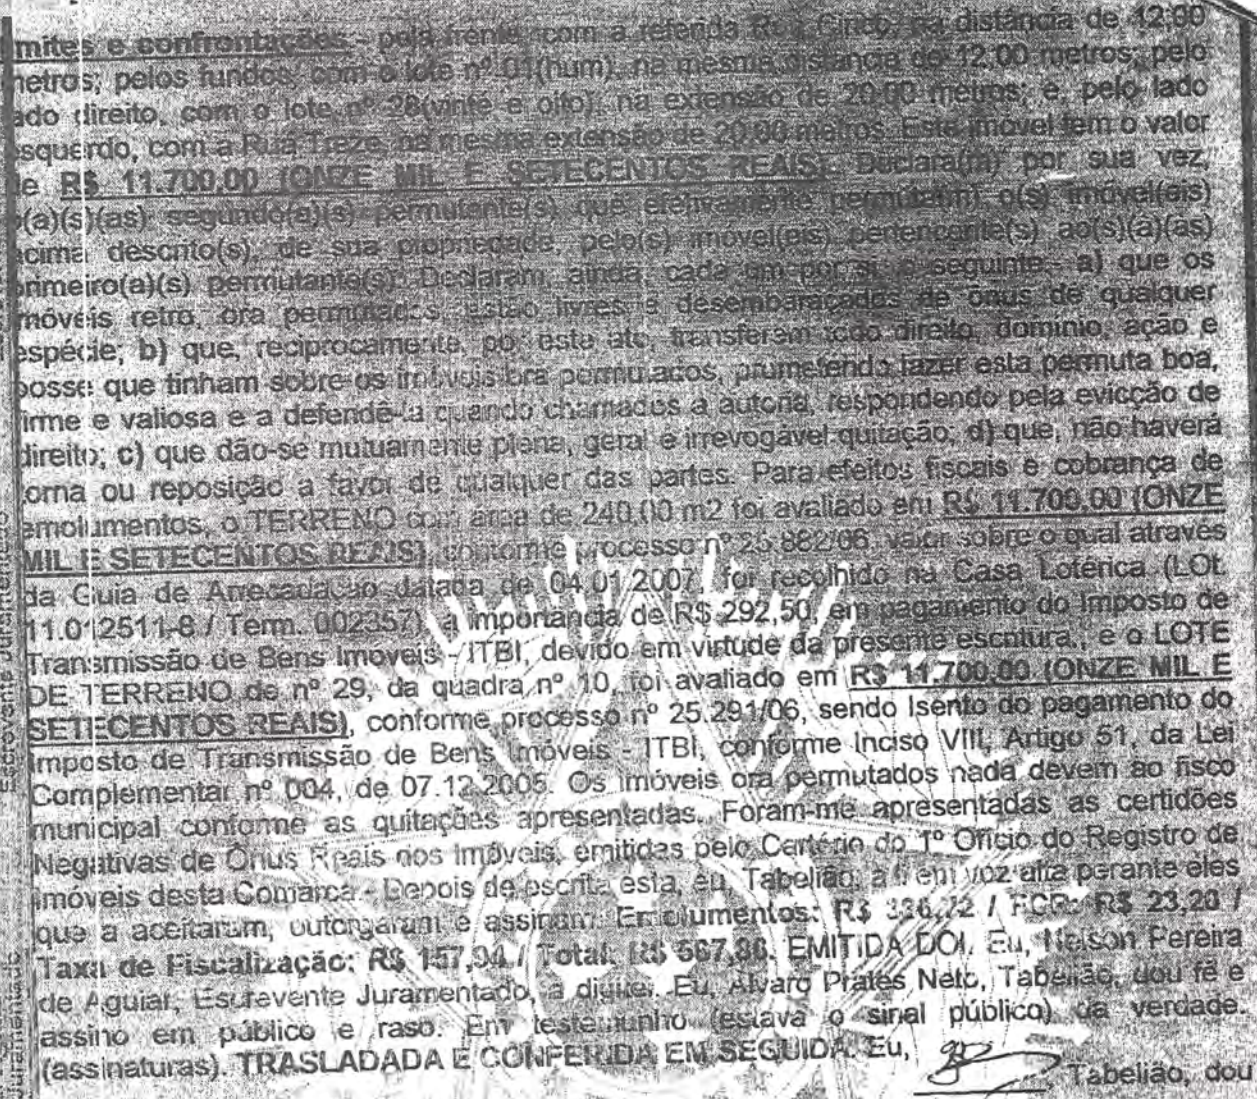 mites e confrontações - pela frente, com a referida Rua Cinco, na distância de 12:00
metros; pelos fundos, com o lote nº 01(hum), na mesma distância de 12:00 metros; pelo
ado direito, com o lote nº 28(vinte e oito), na extensão de 20:00 metros; e, pelo lado
squerdo, com a Rua Treze, na mesma extensão de 20:00 metros. Este imóvel tem o valor
e R$ 11.700,00 (ONZE MIL E SETECENTOS REAIS). Declara(m) por sua vez,
(a)(s)(as) segundo(a)(s) permutante(s) que efetivamente permuta(m) o(s) imóvel(eis)
cima descrito(s), de sua propriedade, pelo(s) imóvel(eis) pertencente(s) ao(s)(a)(as)
rimeiro(a)(s) permutante(s). Declaram, ainda, cada um por si, o seguinte:- a) que os
móveis retro, ora permutados, estão livres e desembaraçados de ônus de qualquer
espécie; b) que, reciprocamente, por este ato, transferem todo direito, domínio, ação e
posse que tinham sobre os imóveis ora permutados, prometendo fazer esta permuta boa,
irme e valiosa e a defendê-la quando chamados a autoria, respondendo pela evicção de
direito; c) que dão-se mutuamente plena, geral e irrevogável quitação; d) que, não haverá
orna ou reposição a favor de qualquer das partes. Para efeitos fiscais e cobrança de
emolumentos, o TERRENO com área de 240,00 m2 foi avaliado em R$ 11.700,00 (ONZE
MIL E SETECENTOS REAIS), conforme processo nº 25.882/06, valor sobre o qual através
da Guia de Arrecadação datada de 04.01.2007, foi recolhido na Casa Lotérica (LOt.
11.012511-8 / Term. 002357), a importância de R$ 292,50, em pagamento do Imposto de
Transmissão de Bens Imóveis - ITBI, devido em virtude da presente escritura., e o LOTE
DE TERRENO de nº 29, da quadra nº 10, foi avaliado em R$ 11.700,00 (ONZE MIL E
SETECENTOS REAIS), conforme processo nº 25.291/06, sendo Isento do pagamento do
Imposto de Transmissão de Bens Imóveis - ITBI, conforme Inciso VIII, Artigo 51, da Lei
Complementar nº 004, de 07.12.2005. Os imóveis ora permutados nada devem ao fisco
municipal conforme as quitações apresentadas. Foram-me apresentadas as certidões
Negativas de Ônus Reais dos Imóveis, emitidas pelo Cartório do 1º Ofício do Registro de
Imóveis desta Comarca - Depois de escrita esta, eu, Tabelião, a li em voz alta perante eles
que a aceitaram, outorgaram e assinam. Emolumentos: R$ / FCR: R$ 23,20 /
Taxa de Fiscalização: R$ 157,94 / Total: R$ EMITIDA DOI. Eu, Nelson Pereira
de Aguiar, Escrevente Juramentado, a digitei. Eu, Alvaro Prates Neto, Tabelião, dou fé e
assino em público e raso. Em testemunho (estava o sinal público) da verdade.
(assinaturas). TRASLADADA E CONFERIDA EM SEGUIDA. Eu,
Tabelião, dou
Escrevente Juramentado
Juramentado